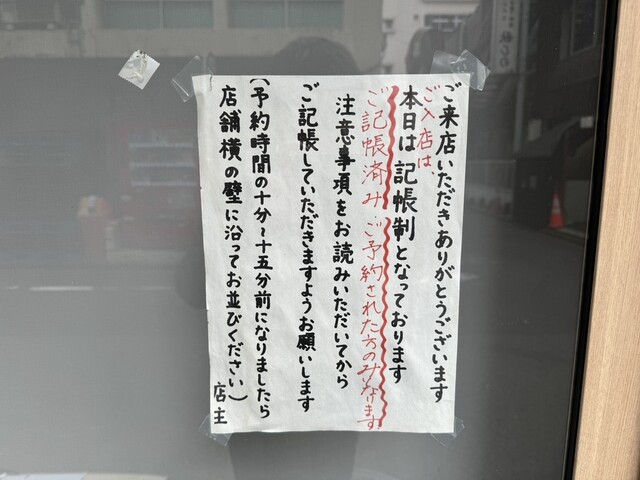 ご来店いただきありがとうございます
ご入店は、
本日は記帳制となっております
ご記帳済み ご予約された方のみになります
注意事項をお読みいただいてから
ご記帳していただきますようお願いします
(予約時間の十分~十五分前になりましたら
店舗横の壁に沿ってお並びください)
店主